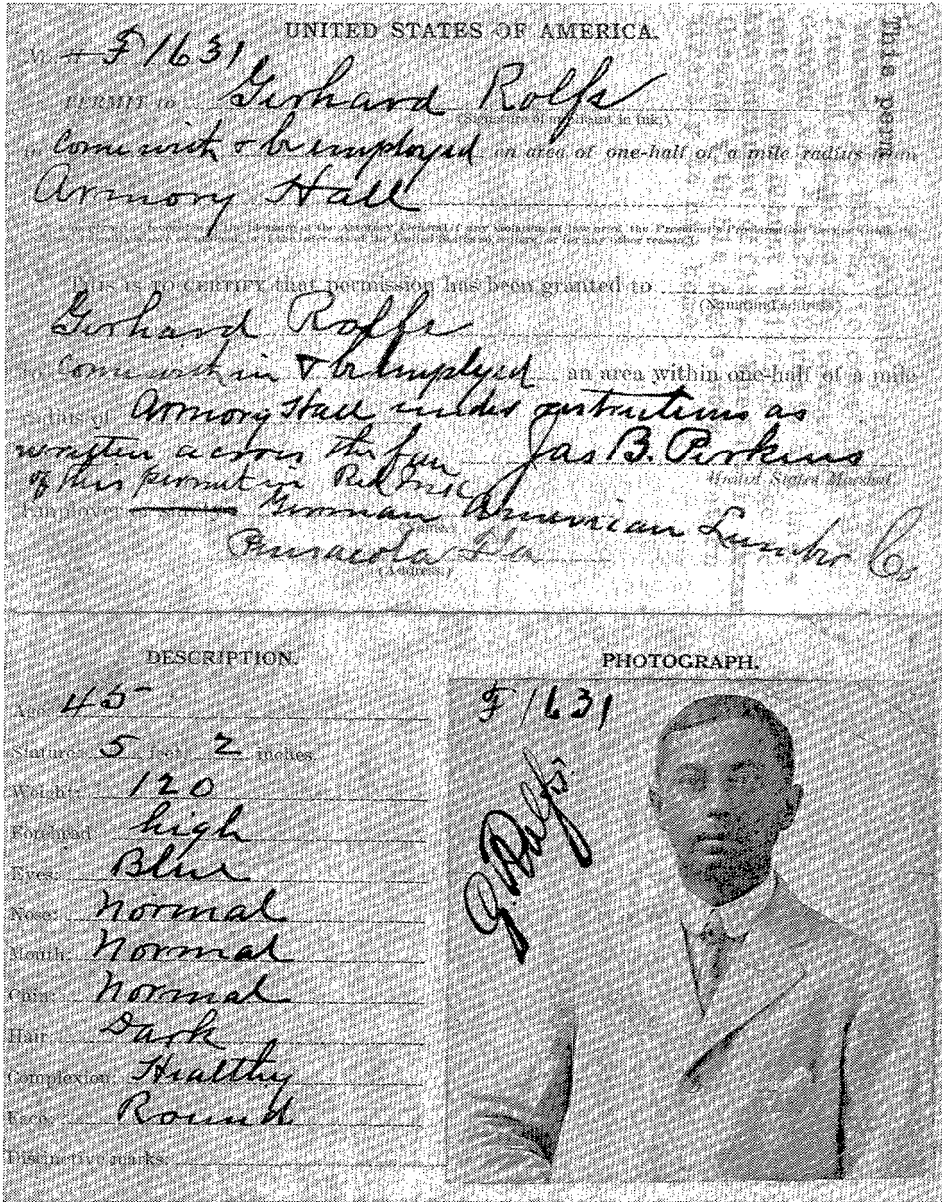 UNITED STATES OF AMERICA.
No. F 1631
PERMIT to Gerhard Rolfs
(Signature of applicant in ink.)
to Come with & be employed an area of one-half of a mile radius from
Armory Hall
THIS IS TO CERTIFY that permission has been granted to
Gerhard Rolfs
to Come within & be employed an area within one-half of a mile
radius of Armory Hall under instructions as
written across the face Jas B. Perkins
of this permit in Red Ink United States Marshal.
Employer German American Lumber Co
Pensacola Fla
(Address.)
This perm
DESCRIPTION.
Age: 45
Stature: 5 feet 2 inches.
Weight: 120
Forehead: high
Eyes: Blue
Nose: Normal
Mouth: Normal
Chin: Normal
Hair: Dark
Complexion: Healthy
Face: Round
Distinctive marks:
PHOTOGRAPH.
F 1631
G. Rolfs.